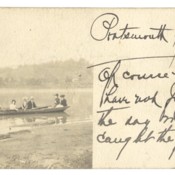 Portsmouth,
Of course
have not
the day
caught the